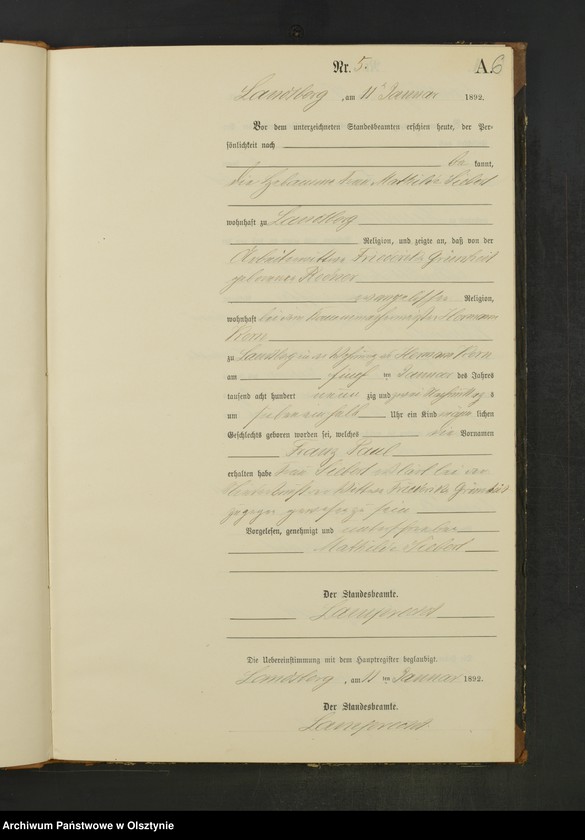 Nr. 5. A. 6
Landsberg, am 11ten Januar 1892.
Vor dem unterzeichneten Standesbeamten erschien heute, der Per-
sönlichkeit nach
be kannt,
die Hebamme Frau Mathilde Siebert
wohnhaft zu Landsberg
Religion, und zeigte an, daß von der
Arbeiterwittwe Friederike
geborenen
evangelischer Religion,
wohnhaft bei dem Hermann
zu Landsberg in der Wohnung des Hermann
am fünf ten Januar des Jahres
tausend acht hundert neun zig und zwei Nachmittags
um sieben einhalb Uhr ein Kind männ lichen
Geschlechts geboren worden sei, welches die Vornamen
Franz Paul
erhalten habe Frau Siebert erklärt bei der
Niederkunft der Wittwe Friederike
zugegen gewesen zu sein
Vorgelesen, genehmigt und unterschrieben
Mathilde Siebert
Der Standesbeamte.
Lamprecht
Die Uebereinstimmung mit dem Hauptregister beglaubigt.
Landsberg, am 11 ten Januar 1892.
Der Standesbeamte.
Lamprecht
Archiwum Państwowe w Olsztynie